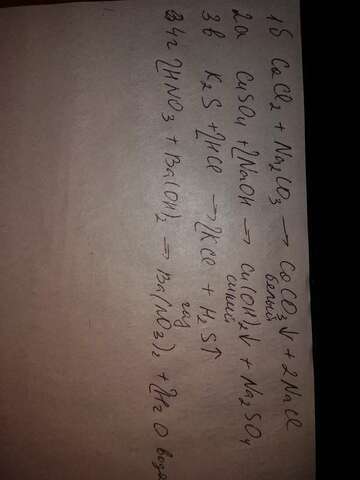 1б CaCl2 + Na2CO3 → CaCO3↓ + 2NaCl
белый
2а CuSO4 + 2NaOH → Cu(OH)2↓ + Na2SO4
синий
3в K2S + 2HCl → 2KCl + H2S↑
газ
4г 2HNO3 + Ba(OH)2 → Ba(NO3)2 + 2H2O вода